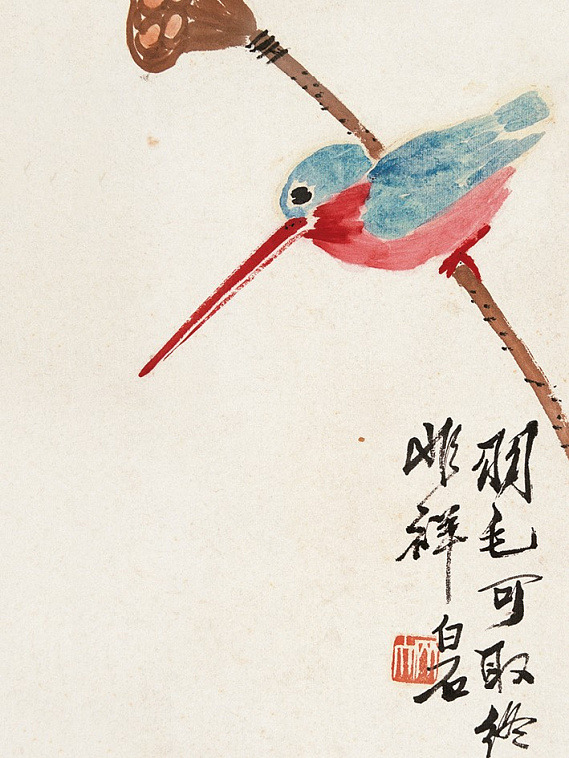 羽毛可取終
非祥白石